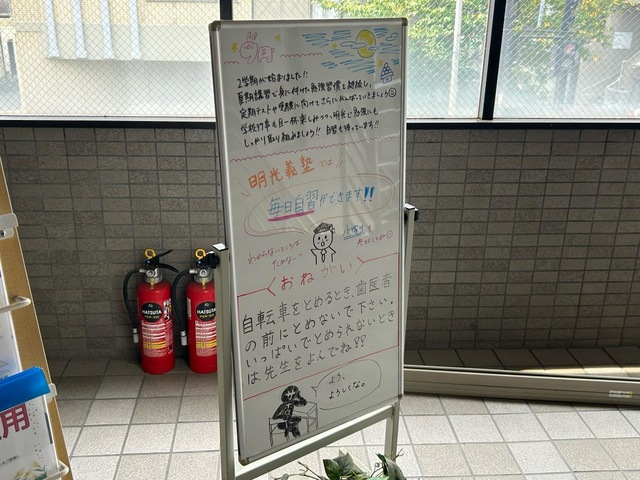 9月
2学期が始まりました!!
夏期講習で身に付けた勉強習慣を継続し、
定期テストや受験に向けてさらにがんばっていきましょう
学校行事も目一杯楽しみつつ、明光で勉強にも
しっかり取り組みましょう!! 自習も待ってます!!
明光義塾では!!
毎日自習ができます!!
小学生も
わからないところは
ためない!!
おねがい
自転車をとめるとき、歯医者
の前にとめないで下さい。
いっぱいでとめられないとき
は先生をよんでね!?
よう、
よろしくな。
HATSUTA
HATSUTA
用